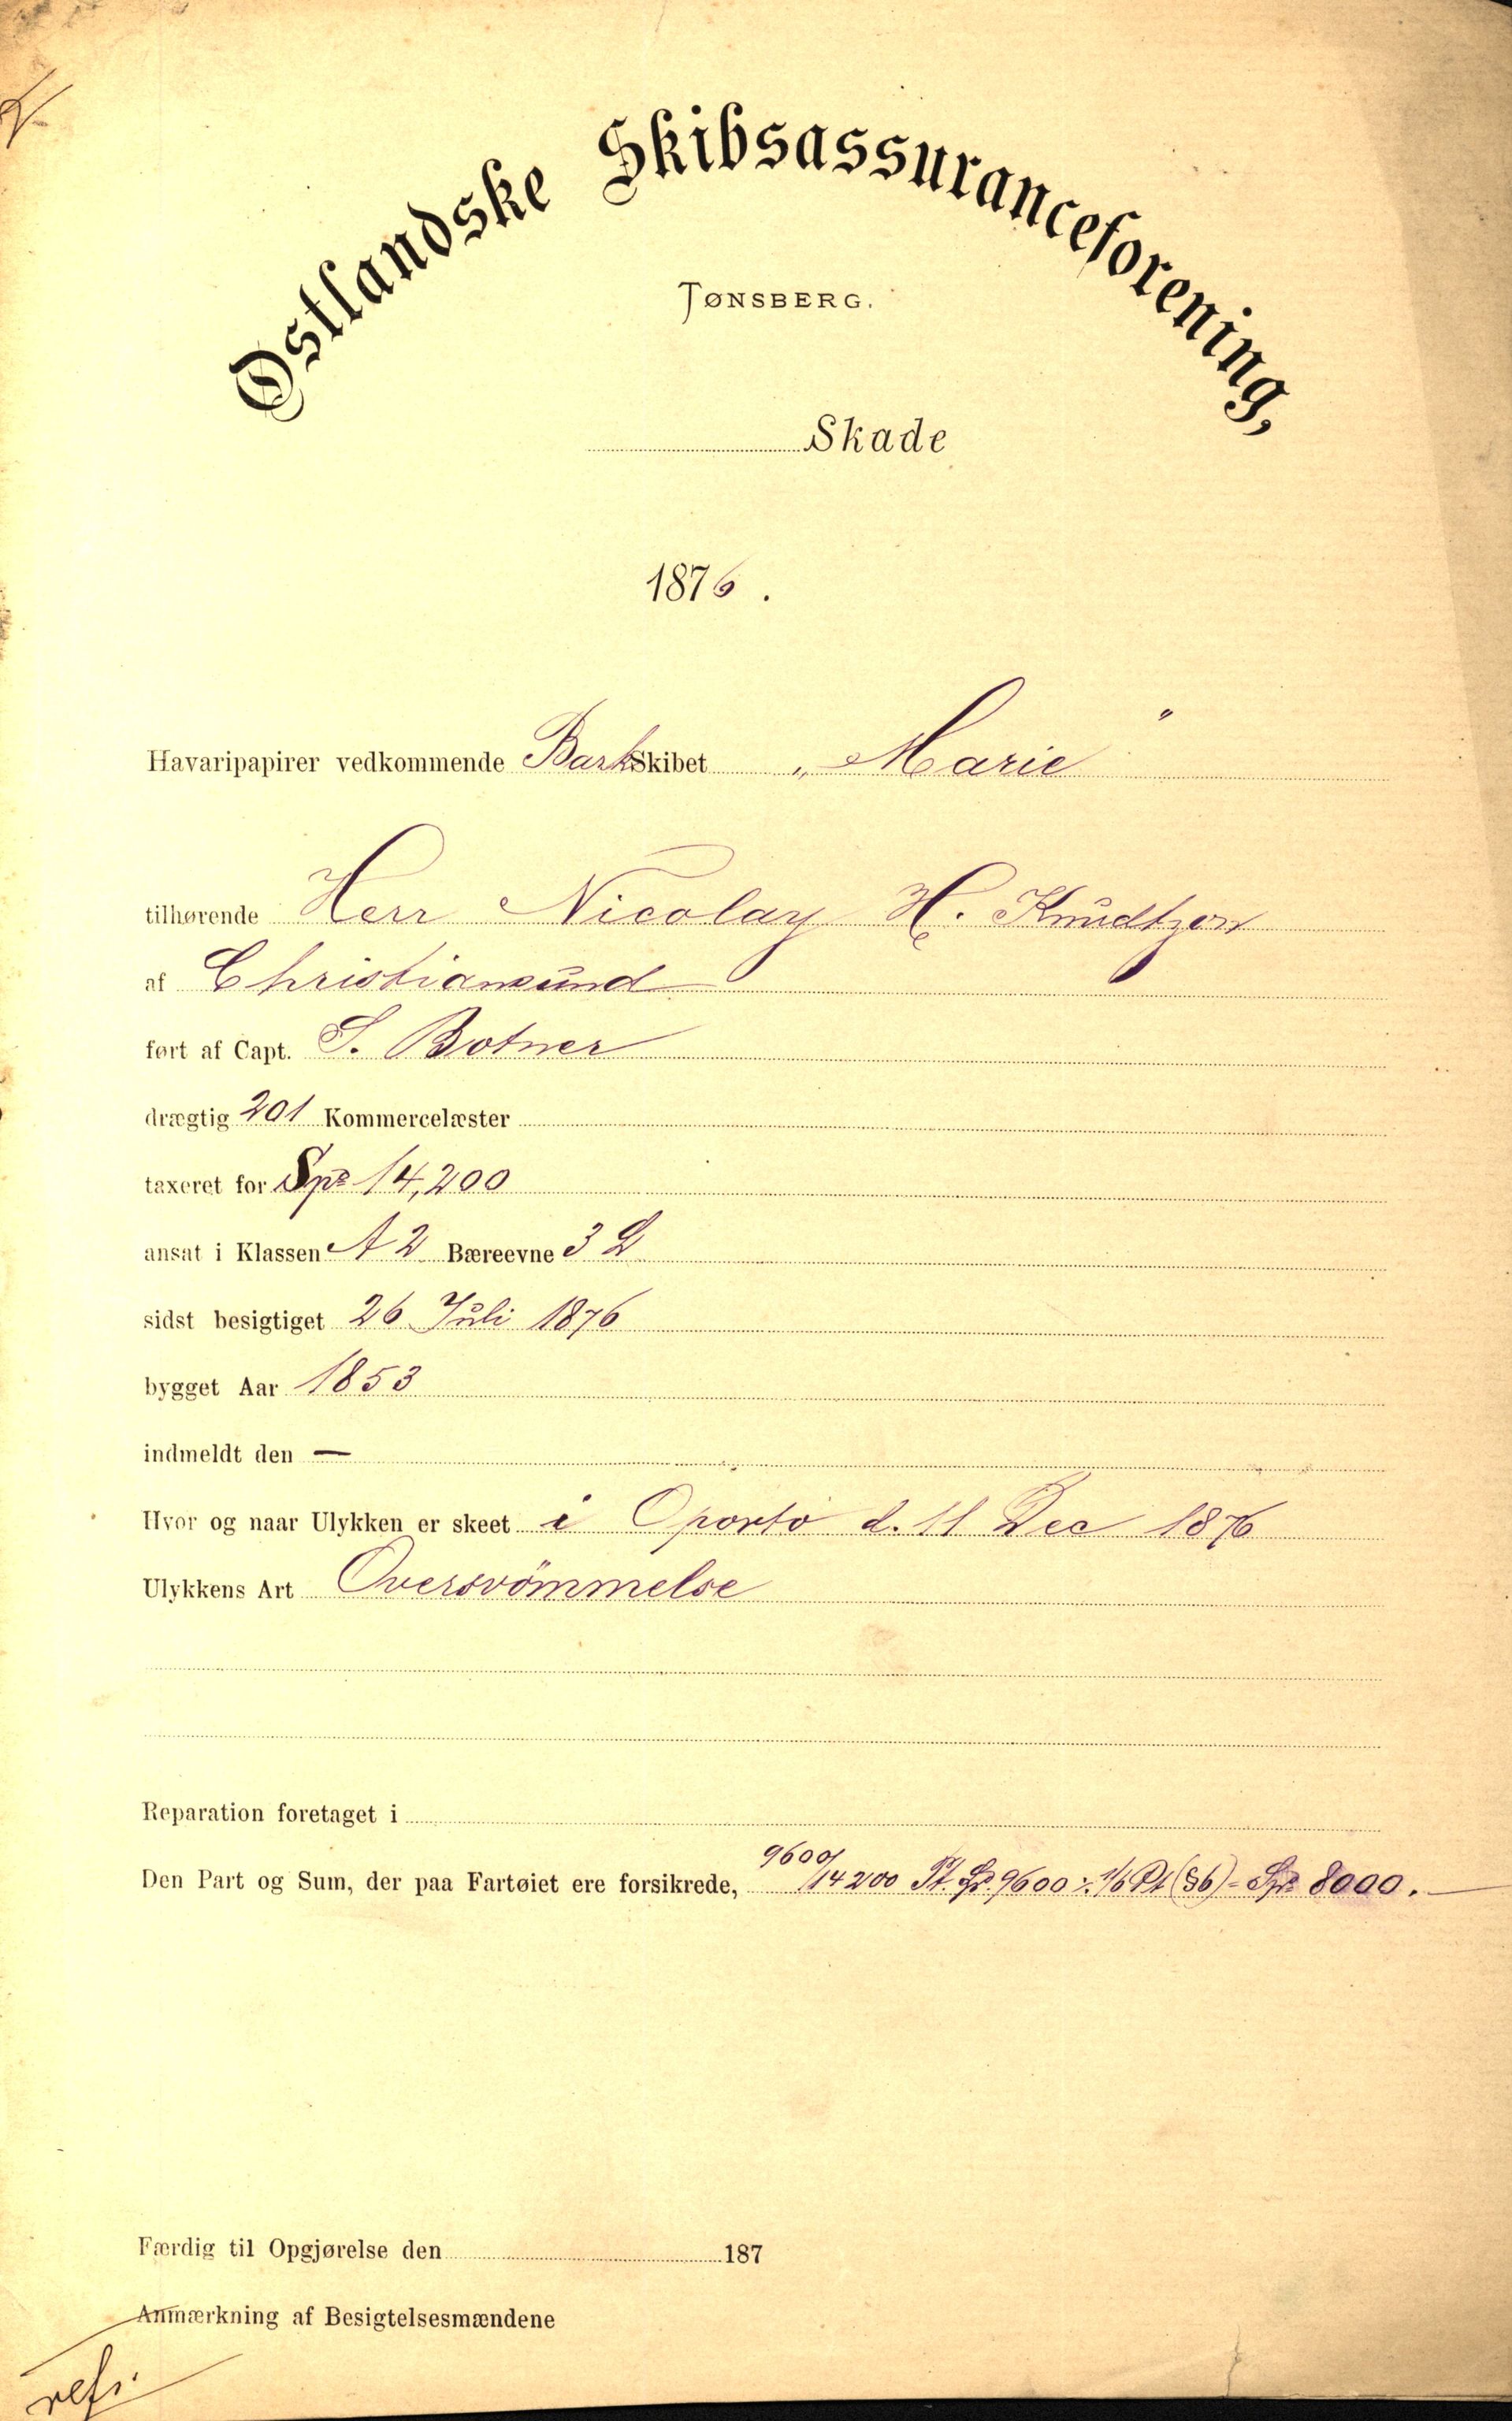 Østlandske Skibsassuranceforening,
TØNSBERG.
Skade
1876.
Havaripapirer vedkommende Bark Skibet „Marie"
tilhørende Herr Nicolay H. Knudtzon
af Christiansund
ført af Capt. S. Botner
drægtig 201 Kommercelæster
taxeret for Spd 14,200
ansat i Klassen A 2 Bæreevne 3 L
sidst besigtiget 26 Juli 1876
bygget Aar 1853
indmeldt den —
Hvor og naar Ulykken er skeet i Oporto d. 11 Dec 1876
Ulykkens Art Oversvömmelse
Reparation foretaget i
Den Part og Sum, der paa Fartøiet ere forsikrede, 9600/14200 Pt. Sp. 9600 ÷ 1/6 Pt (§6) = Spd 8000.
Færdig til Opgjørelse den 187
Anmærkning af Besigtelsesmændene